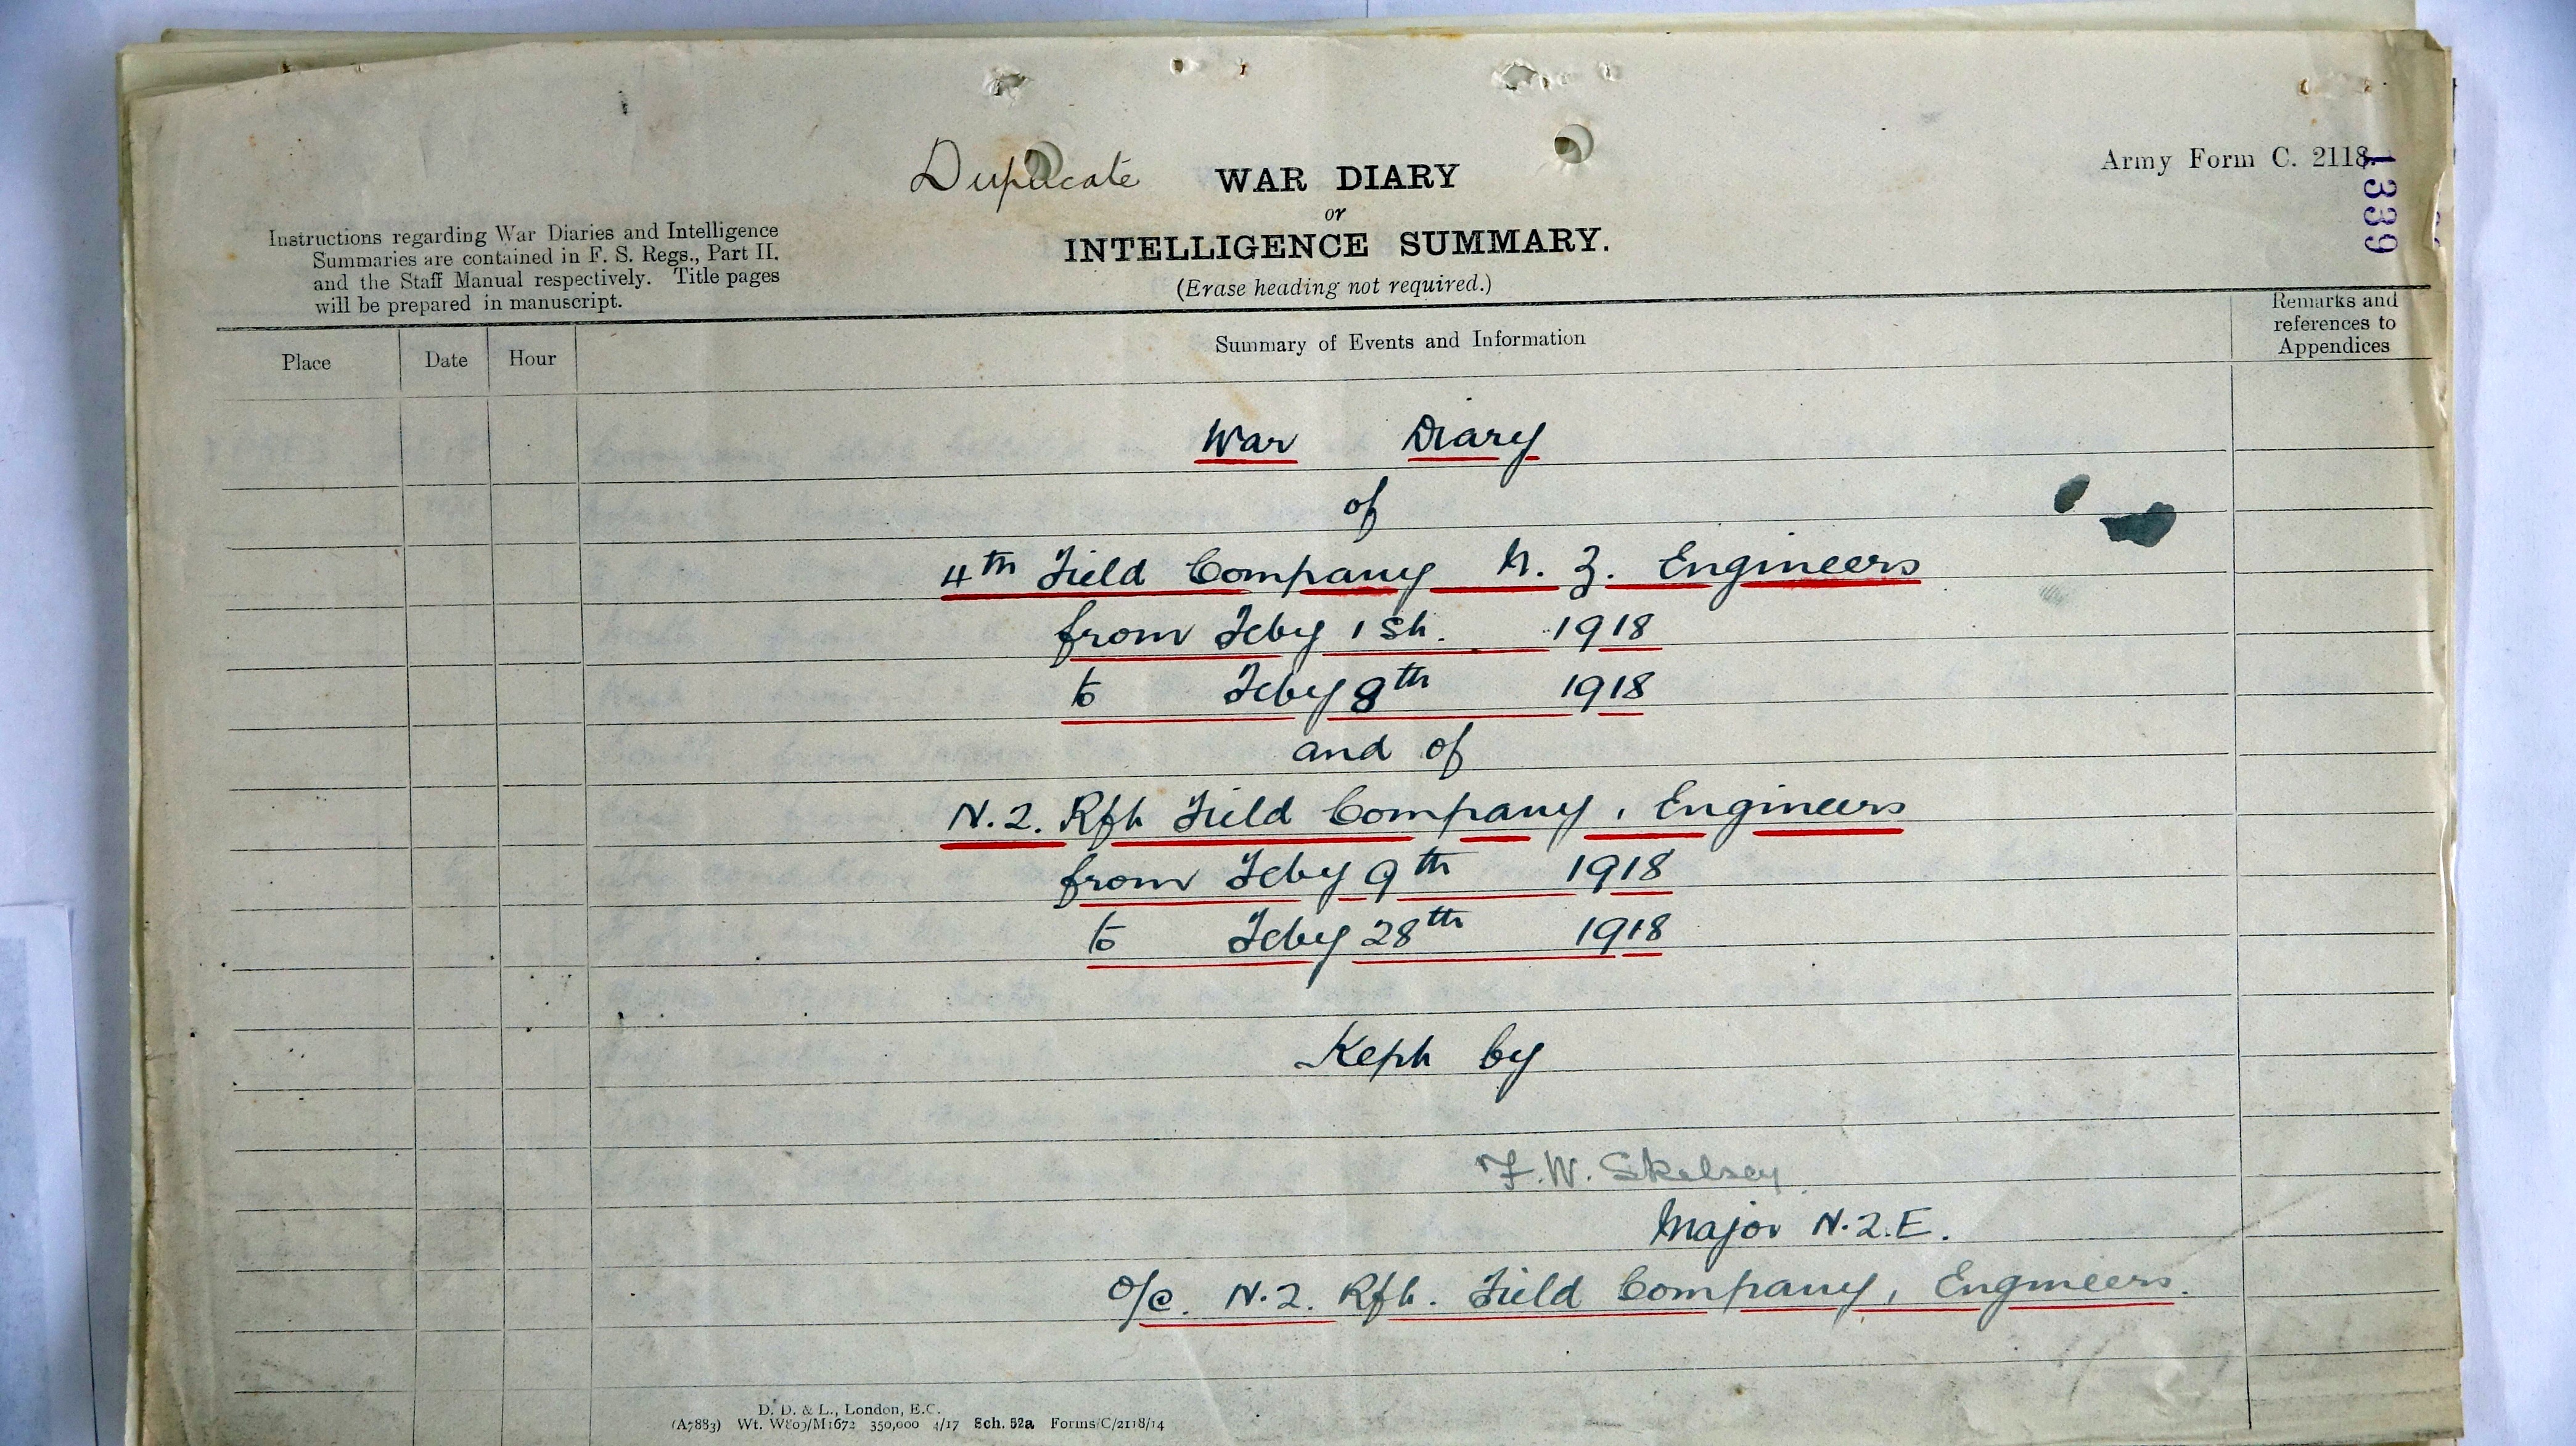 Duplicate
WAR DIARY
or
INTELLIGENCE SUMMARY.
(Erase heading not required.)
Army Form C. 2118.
1339
Instructions regarding War Diaries and Intelligence
Summaries are contained in F. S. Regs., Part II.
and the Staff Manual respectively. Title pages
will be prepared in manuscript.
Place
Date
Hour
Summary of Events and Information
Remarks and
references to
Appendices
War Diary
of
4th Field Company N. Z. Engineers
from Feby 1st. 1918
to Feby 8th 1918
and of
N.Z. Rft Field Company, Engineers
from Feby 9th 1918
to Feby 28th 1918
Kept by
F.W. Skelsey
Major N.Z.E.
O/C. N.Z. Rft. Field Company, Engineers.
D. D. & L., London, E.C.
(A7883) Wt. W809/M1672 350,000 4/17 Sch. 52a Forms/C/2118/14